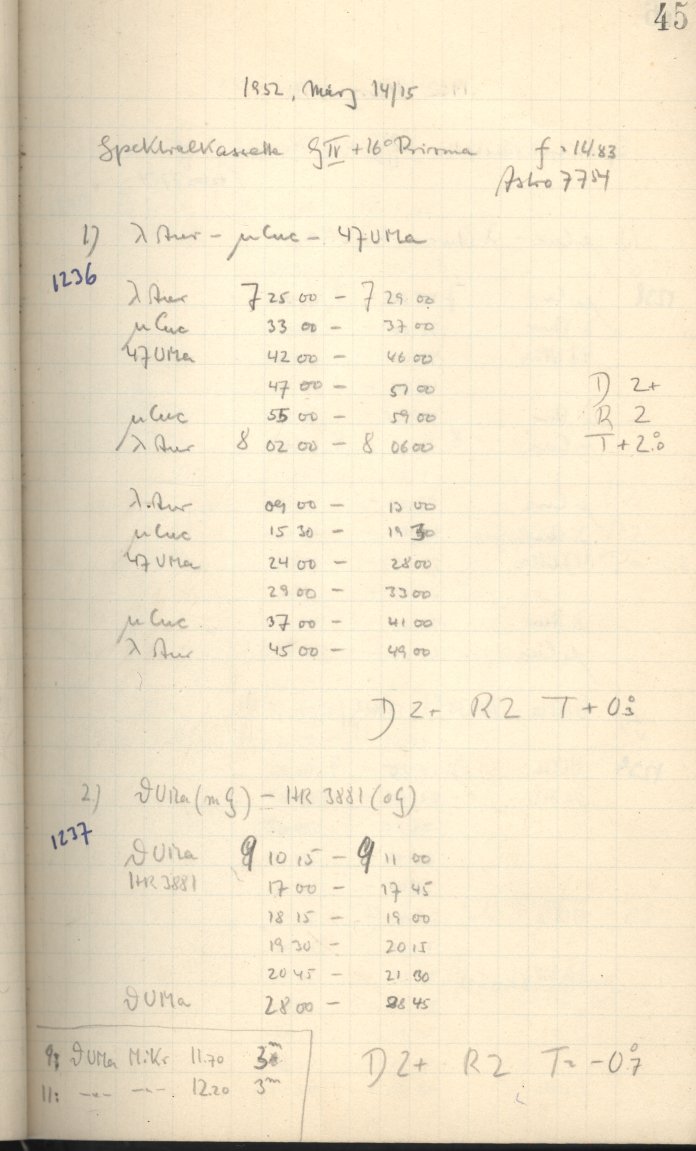 45
1952, März 14/15
Spektralkassette G IV + 16° Prisma f = 14.83
Astro 7754
1) λ Aur – μ Cnc – 47 UMa
1236
λ Aur 7 25 00 – 7 29 00
μ Cnc 33 00 – 37 00
47 UMa 42 00 – 46 00
47 00 – 51 00 D 2+
μ Cnc 55 00 – 59 00 R 2
λ Aur 8 02 00 – 8 06 00 T + 2.°0
λ Aur 09 00 – 13 00
μ Cnc 15 30 – 19 30
47 UMa 24 00 – 28 00
29 00 – 33 00
μ Cnc 37 00 – 41 00
λ Aur 45 00 – 49 00
D 2+ R 2 T + 0.°3
2) ϑ UMa (mG) – HR 3881 (oG)
1237
ϑ UMa 9 10 15 – 9 11 00
HR 3881 17 00 – 17 45
18 15 – 19 00
19 30 – 20 15
20 45 – 21 30
ϑ UMa 28 00 – 28 45
9: ϑ UMa Mikr 11.70 3ᵐ
11: –"– –"– 12.20 3ᵐ
D 2+ R 2 T = –0.°7